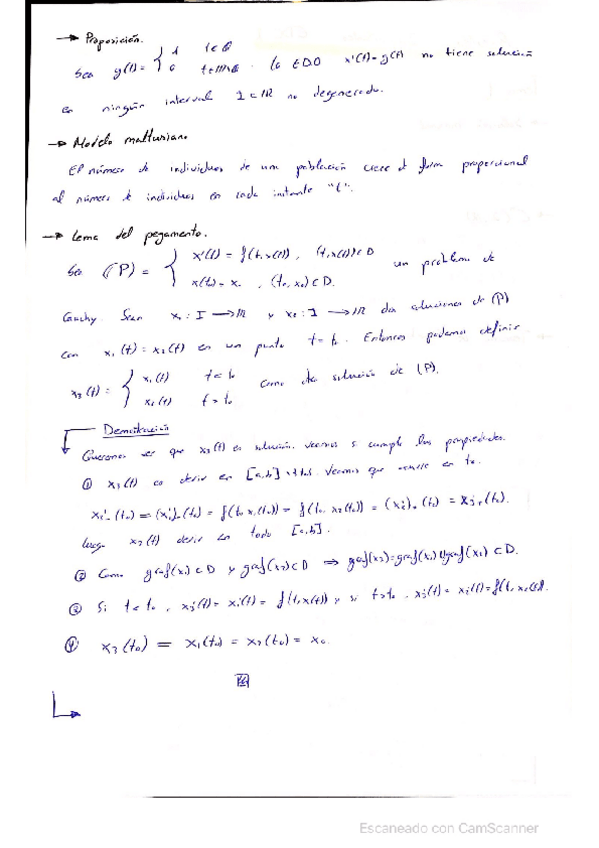 → Proposición.
Sea g(t) = { 1 t∈Q
0 t∈ℝ\Q . La EDO x'(t) = g(t) no tiene solución
en ningún interval I ⊂ ℝ no degenerado.
→ Modelo malthusiano
El número de individuos de una población crece de form proporcional
al número de individuos en cada instante "t".
→ Lema del pegamento.
Sea (P) = { x'(t) = f(t, x(t)) , (t, x(t)) ∈ D
x(t₀) = x₀ , (t₀, x₀) ∈ D. un problema de
Cauchy. Sean x₁ : I → ℝ y x₂ : I → ℝ dos soluciones de (P)
con x₁(t) = x₂(t) en un punto t = t₀. Entonces podemos definir
x₃(t) = { x₁(t) t ≤ t₀
x₂(t) t > t₀ como otra solución de (P).
Demostración
Queremos ver que x₃(t) es solución. Veamos si cumple las propiedades.
① x₃(t) es deriv en [a,b]\{t₀}. Veamos que ocurre en t₀.
x₃'₋(t₀) = (x₁')₋(t₀) = f(t₀, x₁(t₀)) = f(t₀, x₂(t₀)) = (x₂')₊(t₀) = x₃'₊(t₀).
luego x₃(t) deriv en todo [a,b].
② Como graf(x₁) ⊂ D y graf(x₂) ⊂ D ⇒ graf(x₃) = graf(x₁) ∪ graf(x₂) ⊂ D.
③ Si t < t₀ , x₃'(t) = x₁'(t) = f(t, x₁(t)) y si t > t₀ , x₃'(t) = x₂'(t) = f(t, x₂(t)).
④ x₃(t₀) = x₁(t₀) = x₂(t₀) = x₀
Escaneado con CamScanner